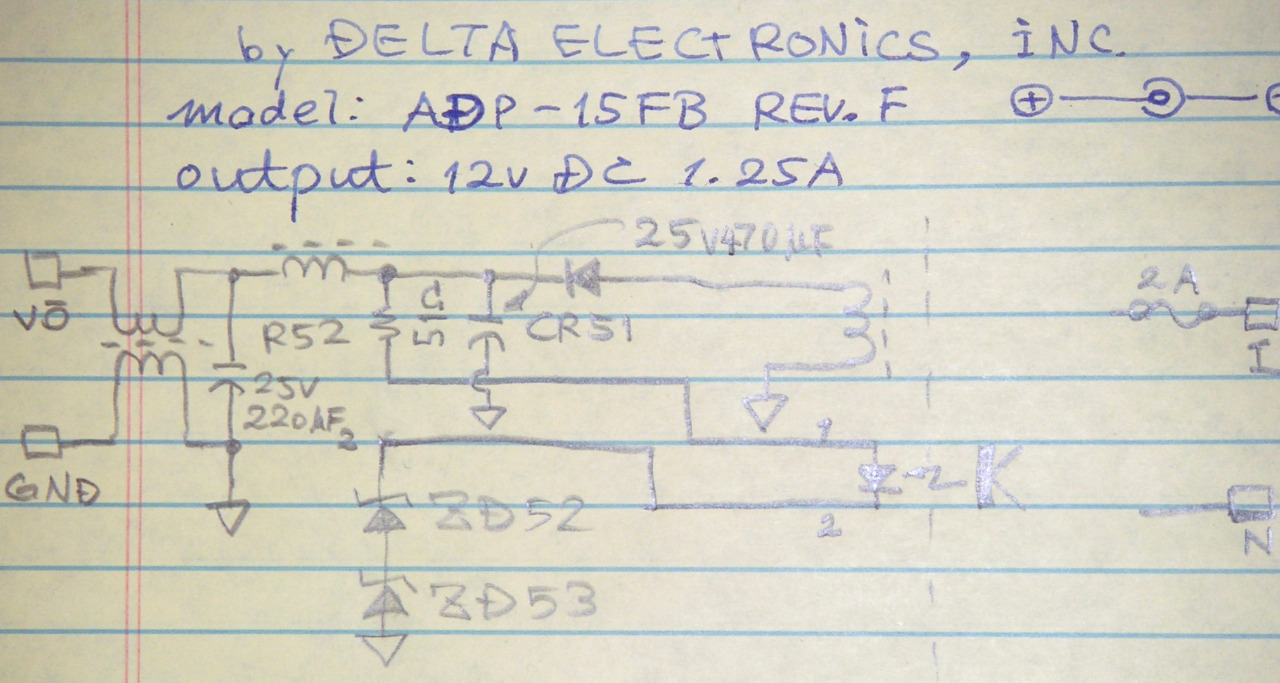 by DELTA ELECTRONiCS, iNC.
model: ADP-15FB REV. F
output: 12v DC 1.25A
25V470µF
2A
VO
R52
CR51
I
25V
220µF
2
1
GND
K
ZD52
2
N
ZD53